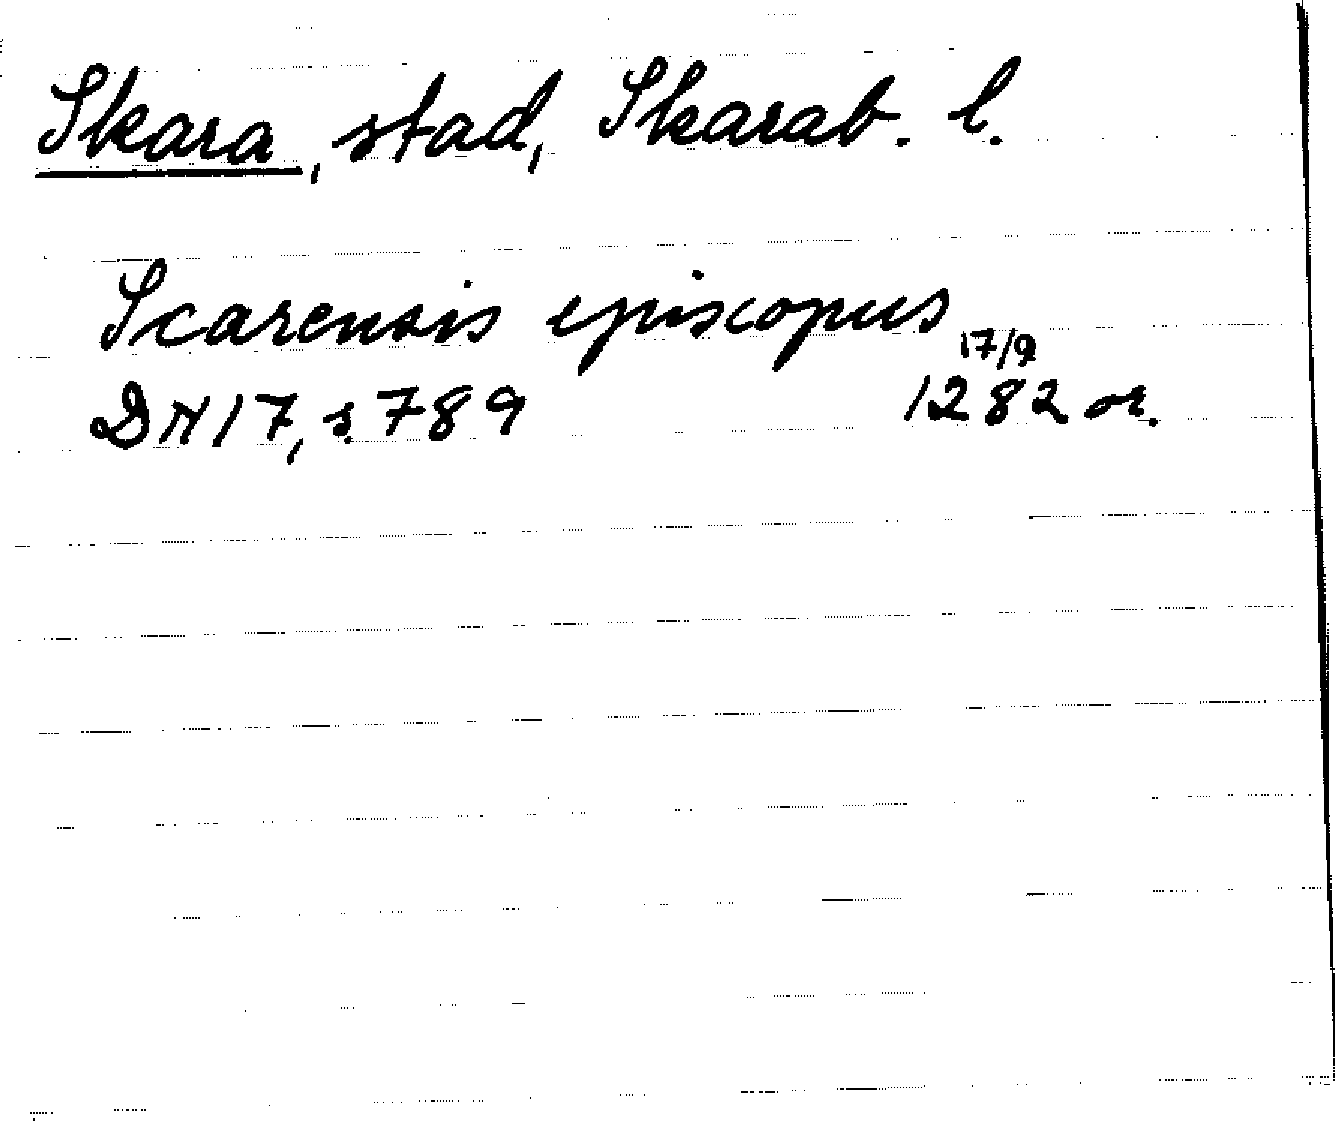 Skara, stad, Skarab. l.
Scarensis episcopus
17/9
DN 17, s. 789 1282 or.